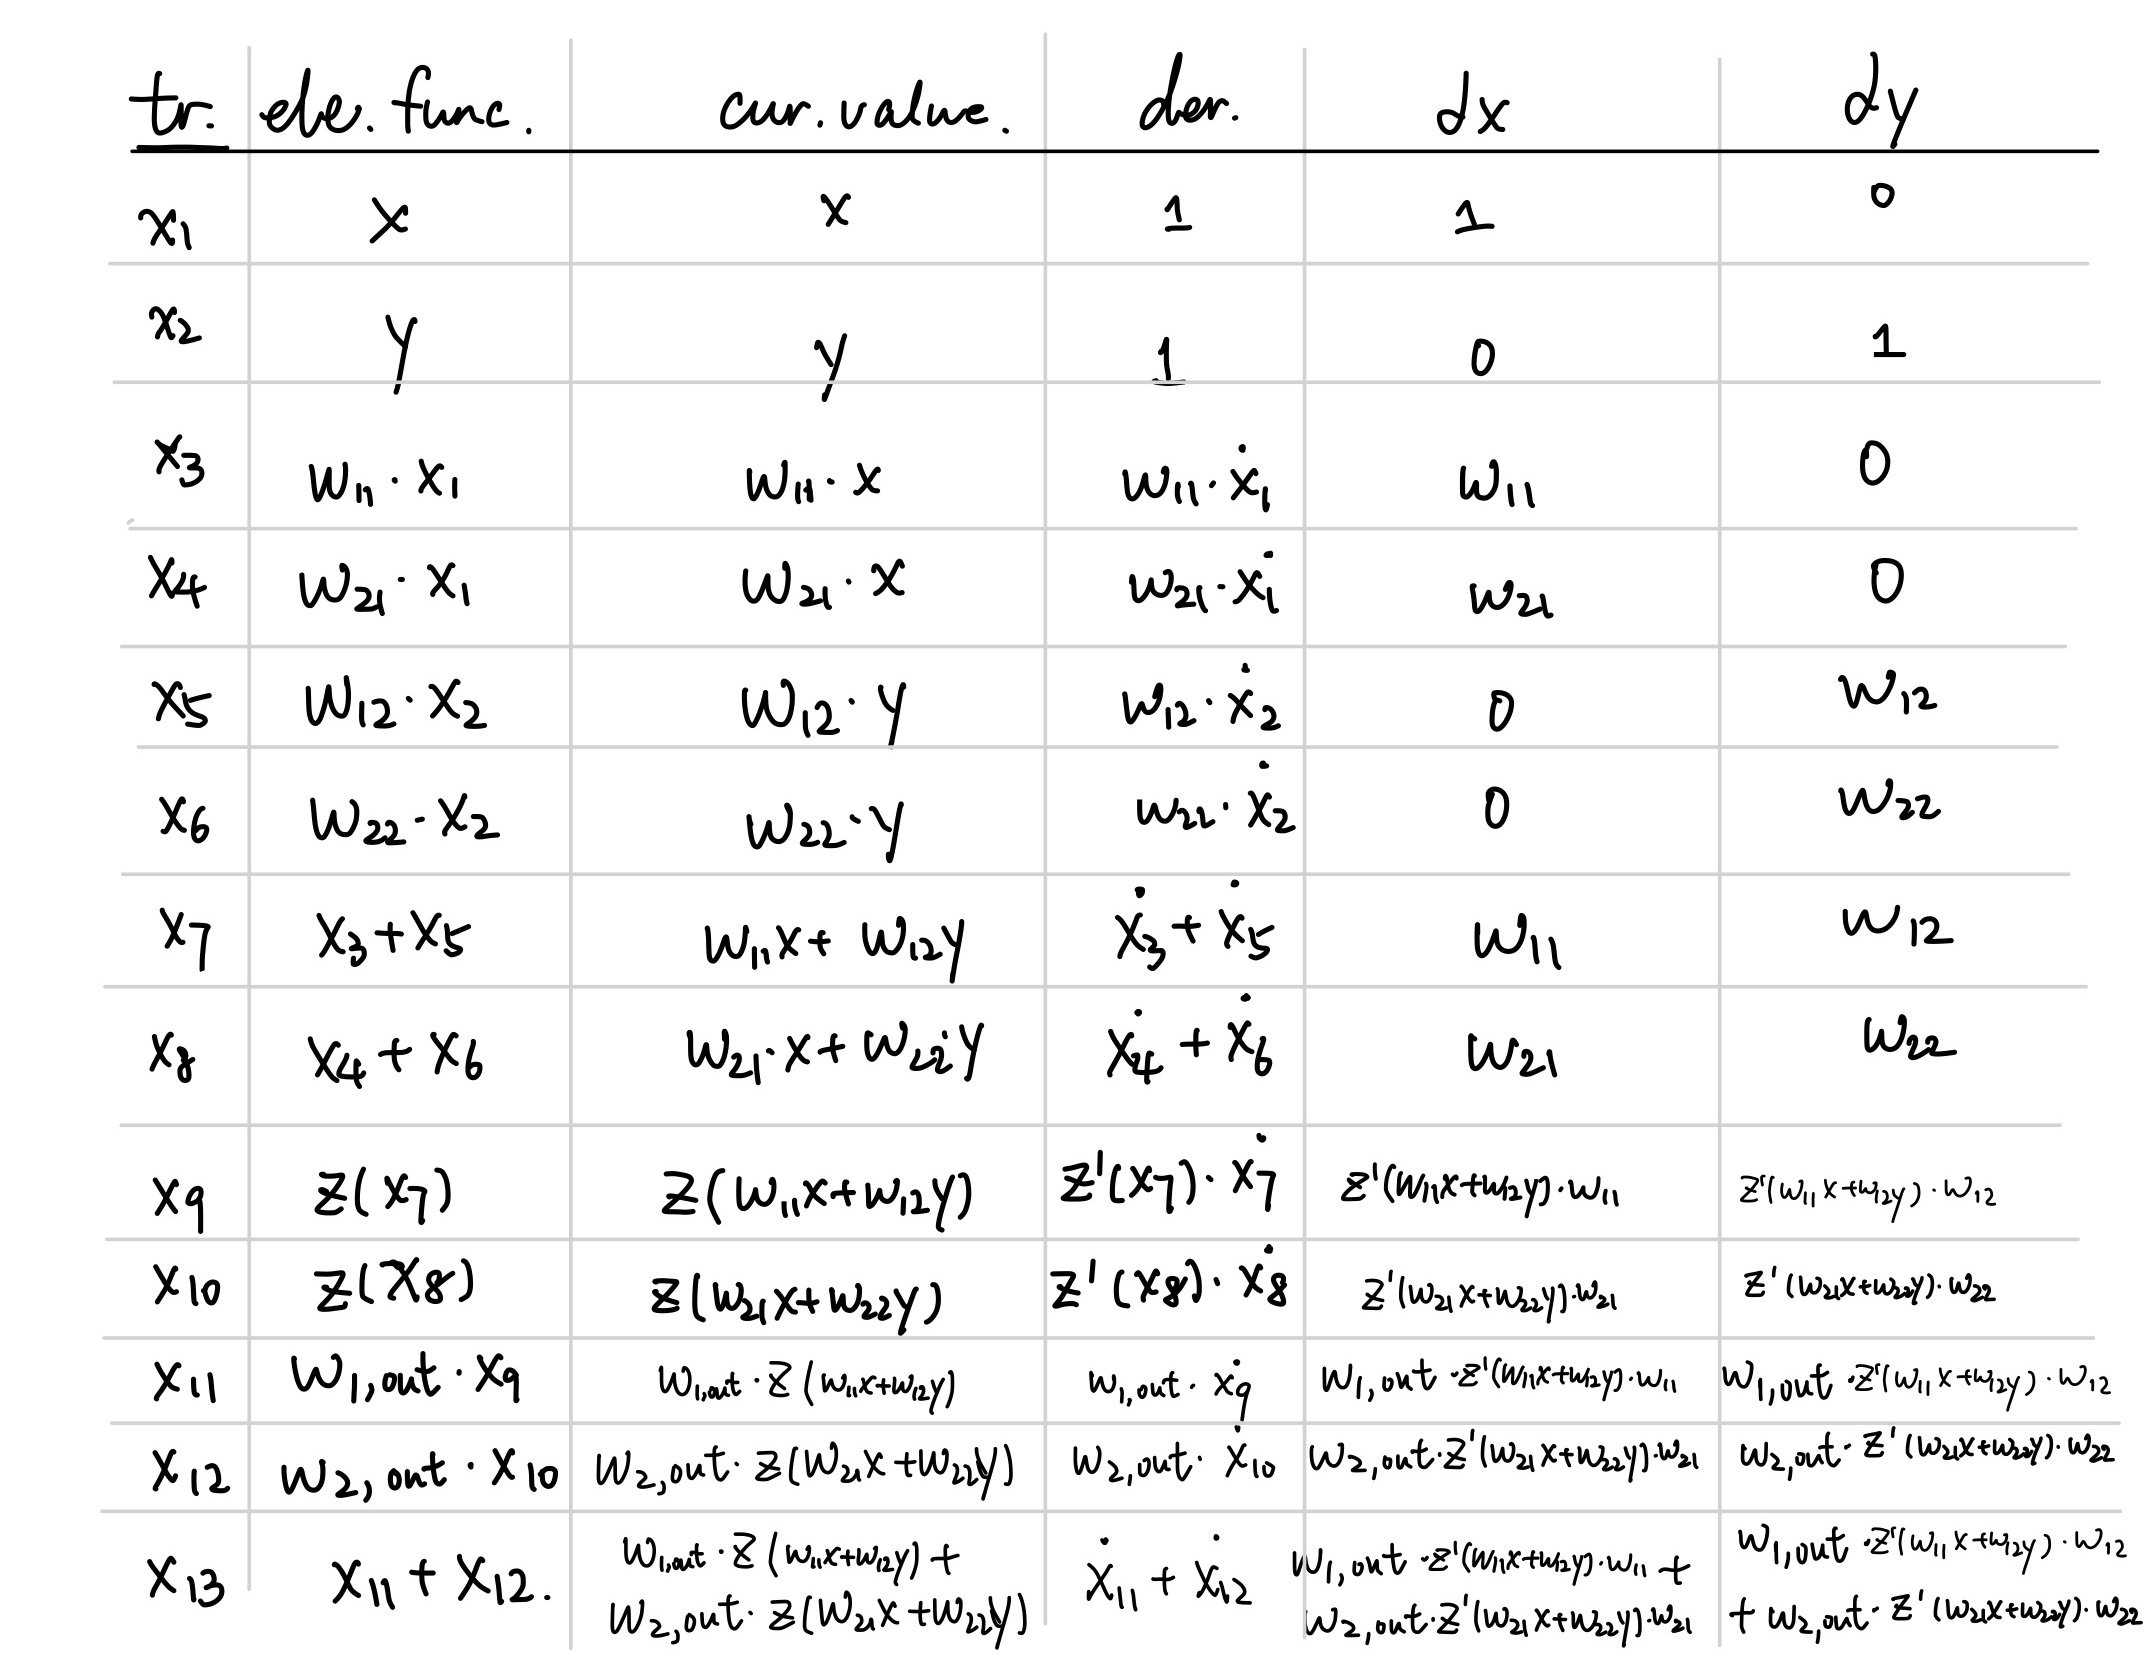 tr. ele. func. cur. value. der. dx dy
x₁ x x 1 1 0
x₂ y y 1 0 1
x₃ w₁₁ · x₁ w₁₁ · x w₁₁ · ẋ₁ w₁₁ 0
x₄ w₂₁ · x₁ w₂₁ · x w₂₁ · ẋ₁ w₂₁ 0
x₅ w₁₂ · x₂ w₁₂ · y w₁₂ · ẋ₂ 0 w₁₂
x₆ w₂₂ · x₂ w₂₂ · y w₂₂ · ẋ₂ 0 w₂₂
x₇ x₃ + x₅ w₁₁x + w₁₂y ẋ₃ + ẋ₅ w₁₁ w₁₂
x₈ x₄ + x₆ w₂₁ · x + w₂₂ · y ẋ₄ + ẋ₆ w₂₁ w₂₂
x₉ z(x₇) z(w₁₁x + w₁₂y) z'(x₇) · ẋ₇ z'(w₁₁x + w₁₂y) · w₁₁ z'(w₁₁x + w₁₂y) · w₁₂
x₁₀ z(x₈) z(w₂₁x + w₂₂y) z'(x₈) · ẋ₈ z'(w₂₁x + w₂₂y) · w₂₁ z'(w₂₁x + w₂₂y) · w₂₂
x₁₁ w₁,out · x₉ w₁,out · z(w₁₁x + w₁₂y) w₁,out · ẋ₉ w₁,out · z'(w₁₁x + w₁₂y) · w₁₁ w₁,out · z'(w₁₁x + w₁₂y) · w₁₂
x₁₂ w₂,out · x₁₀ w₂,out · z(w₂₁x + w₂₂y) w₂,out · ẋ₁₀ w₂,out · z'(w₂₁x + w₂₂y) · w₂₁ w₂,out · z'(w₂₁x + w₂₂y) · w₂₂
x₁₃ x₁₁ + x₁₂. w₁,out · z(w₁₁x + w₁₂y) + ẋ₁₁ + ẋ₁₂ w₁,out · z'(w₁₁x + w₁₂y) · w₁₁ + w₁,out · z'(w₁₁x + w₁₂y) · w₁₂
w₂,out · z(w₂₁x + w₂₂y) w₂,out · z'(w₂₁x + w₂₂y) · w₂₁ + w₂,out · z'(w₂₁x + w₂₂y) · w₂₂